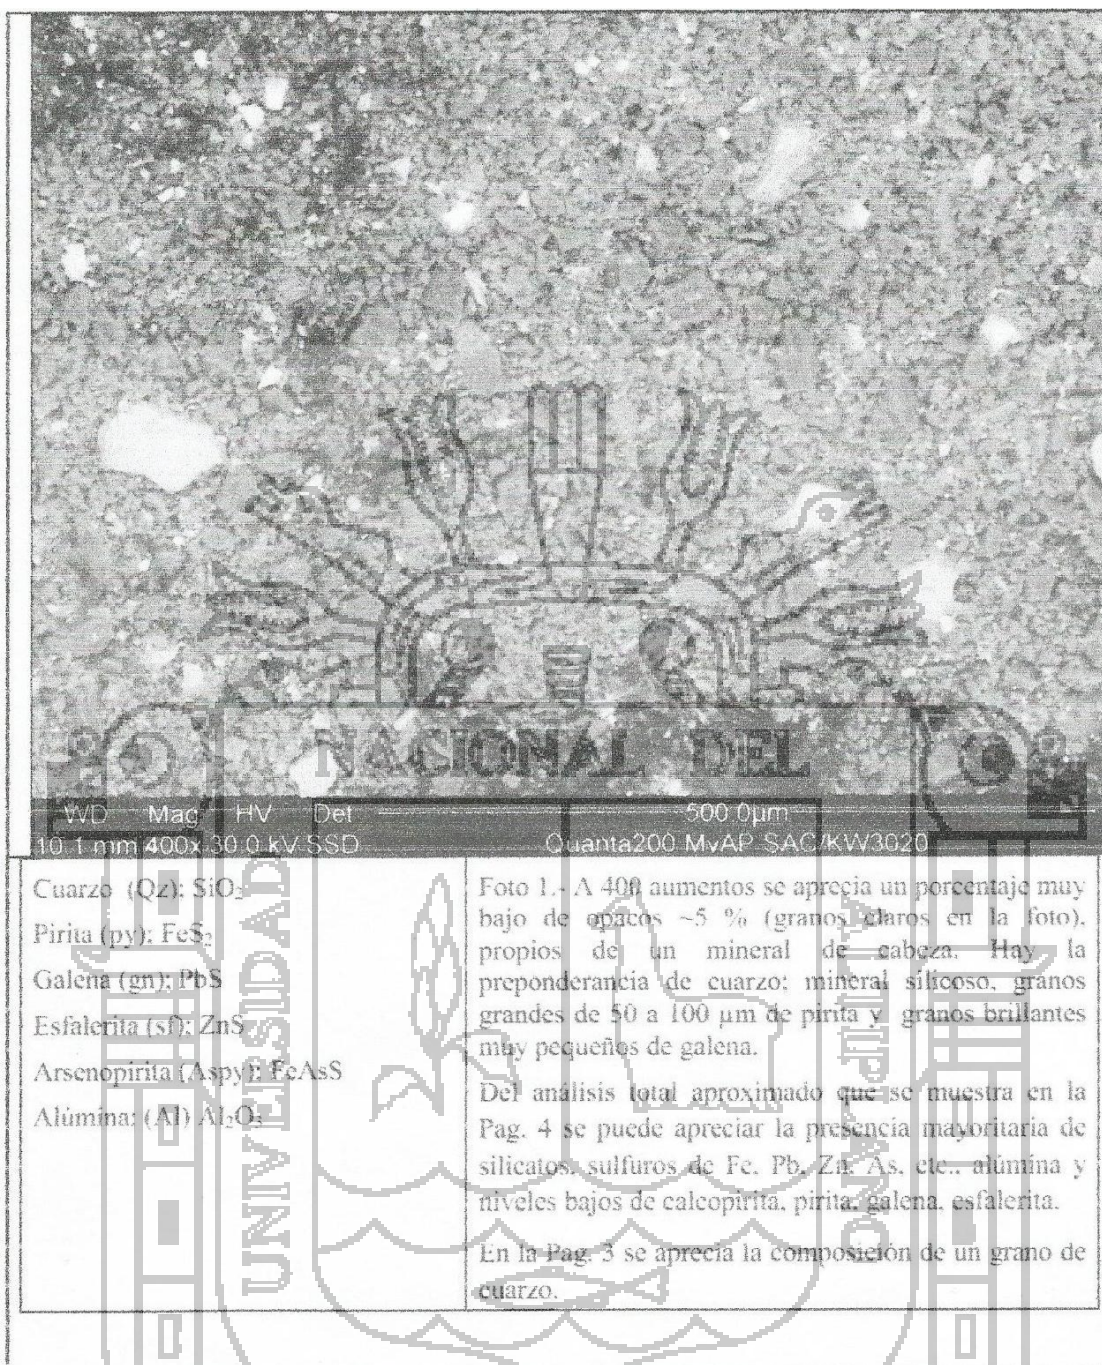 NACIONAL DEL
WD Mag HV Det 500.0µm
10.1 mm 400x 30.0 kV SSD Quanta200 MyAP SAC/KW3020
Cuarzo (Qz): SiO₂
Pirita (py): FeS₂
Galena (gn): PbS
Esfalerita (sf): ZnS
Arsenopirita (Aspy): FeAsS
Alúmina: (Al) Al₂O₃
Foto 1.- A 400 aumentos se aprecia un porcentaje muy
bajo de opacos ~5 % (granos claros en la foto),
propios de un mineral de cabeza. Hay la
preponderancia de cuarzo; mineral silicoso, granos
grandes de 50 a 100 µm de pirita y granos brillantes
muy pequeños de galena.
Del análisis total aproximado que se muestra en la
Pag. 4 se puede apreciar la presencia mayoritaria de
silicatos, sulfuros de Fe, Pb, Zn, As, etc., alúmina y
niveles bajos de calcopirita, pirita, galena, esfalerita.
En la Pag. 3 se aprecia la composición de un grano de
cuarzo.
UNIVERSIDAD
ALTIPLANO